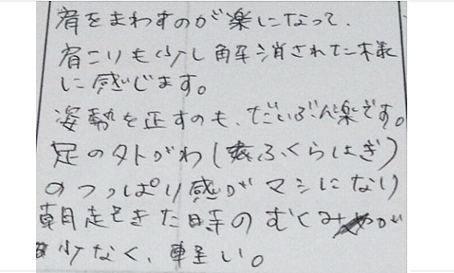 肩をまわすのが楽になって、
肩こりも少し解消された様
に感じます。
姿勢を正すのも、だいぶん楽です。
足の外がわ(ふくらはぎ)
のつっぱり感がマシになり
朝起きた時のむくみが
少なく、軽い。